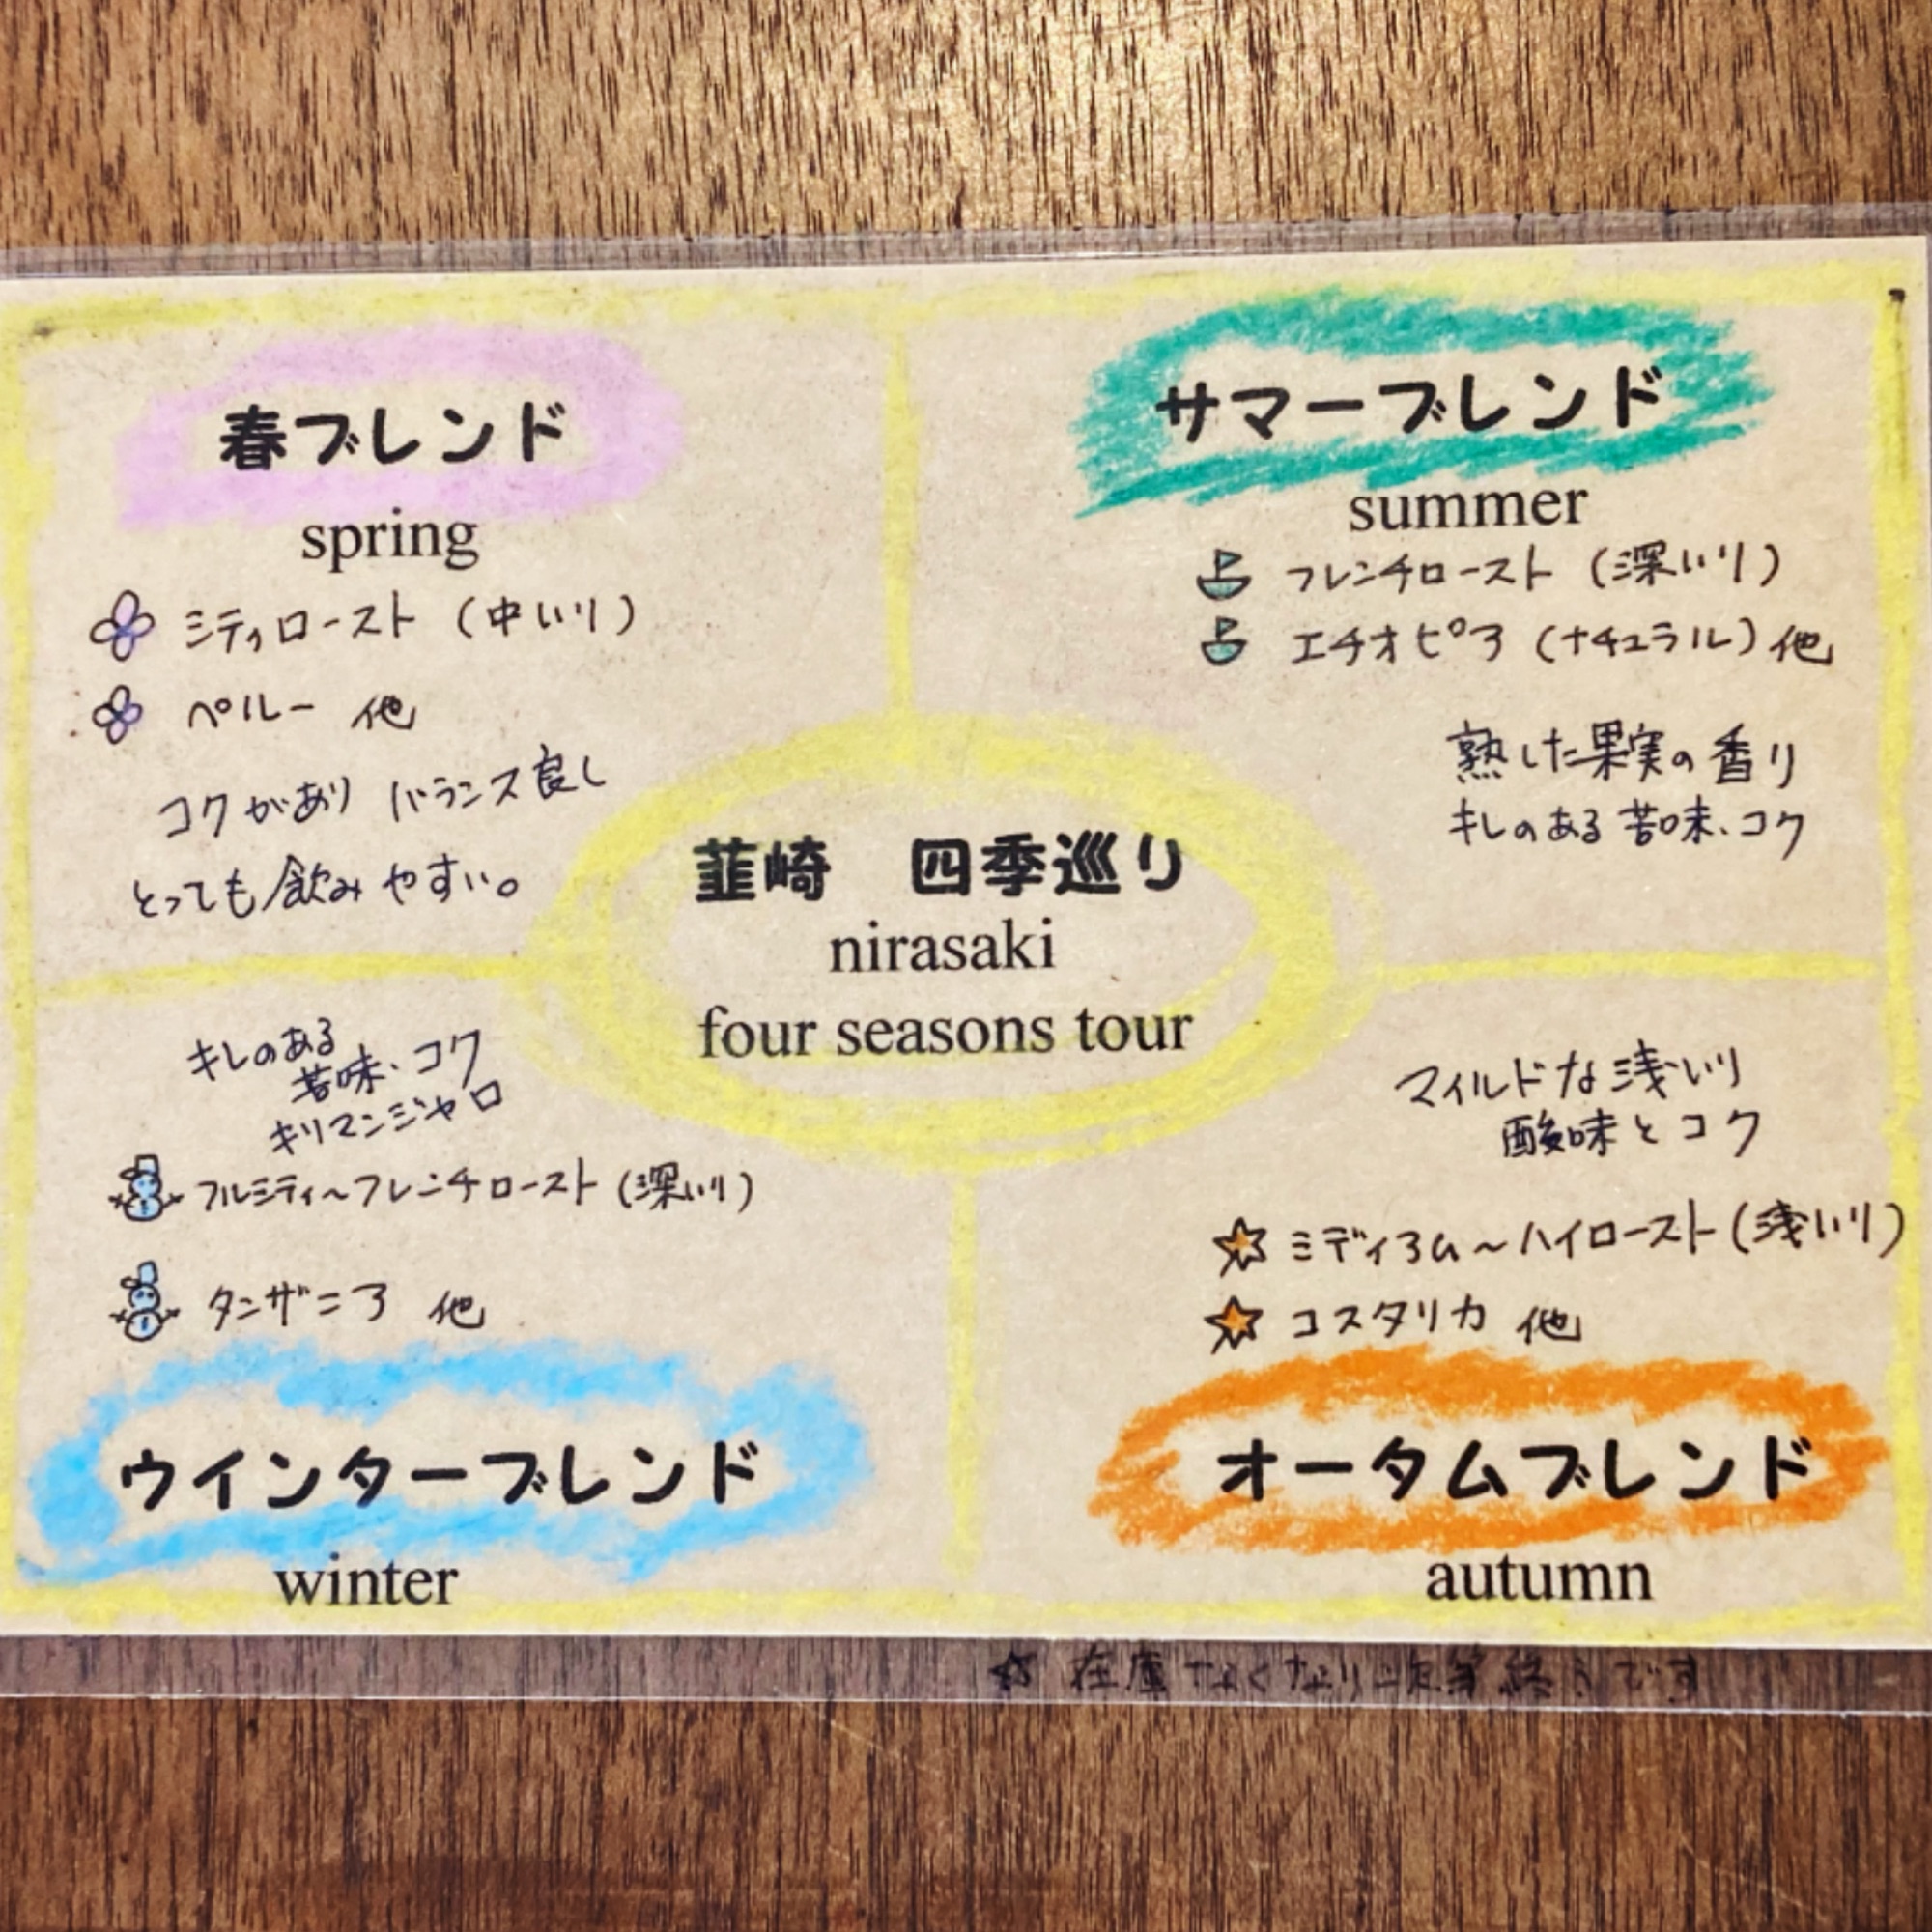 春ブレンド
spring
シティロースト (中いり)
ペルー 他
コクがあり バランス良し
とっても飲みやすい。
サマーブレンド
summer
フレンチロースト (深いり)
エチオピア (ナチュラル) 他
熟した果実の香り
キレのある苦味、コク
韮崎 四季巡り
nirasaki
four seasons tour
キレのある
苦味、コク
キリマンジャロ
フルシティ～フレンチロースト (深いり)
タンザニア 他
ウインターブレンド
winter
マイルドな浅いり
酸味とコク
ミディアム～ハイロースト (浅いり)
コスタリカ 他
オータムブレンド
autumn
☆ 在庫なくなり次第終りです